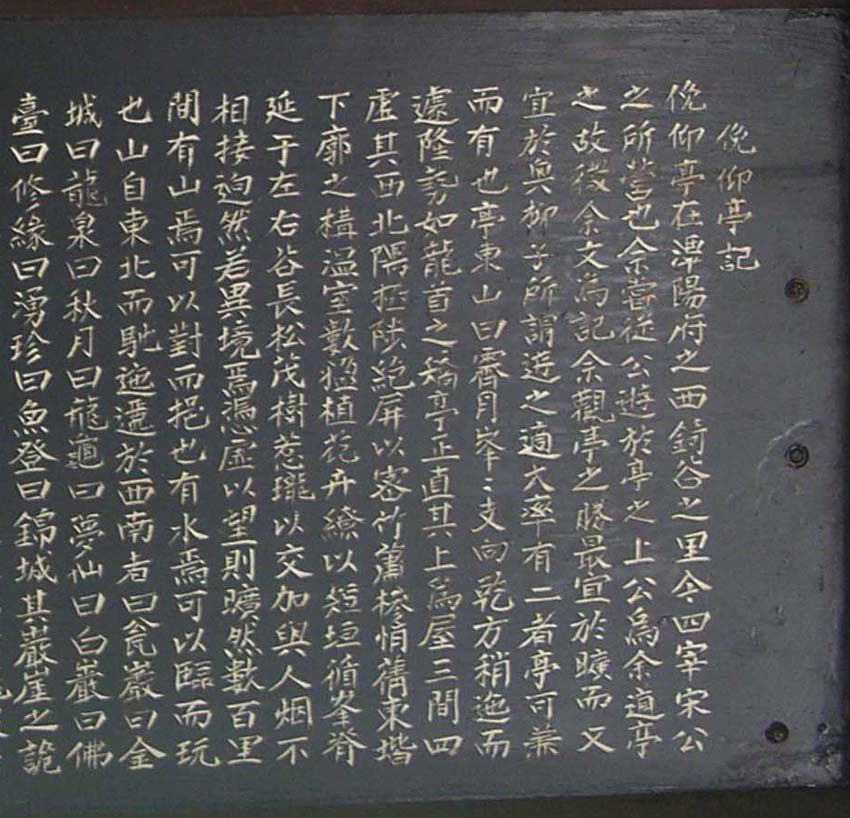 俛仰亭記
俛仰亭在潭陽府之西錡谷之里今四宰宋公
之所營也余嘗從公遊於亭之上公爲余道亭
之故徵余文爲記余觀亭之勝最宜於曠而又
宜於奧柳子所謂遊之適大率有二者亭可兼
而有也亭東山曰霽月峯〻支向乾方稍迤而
遽隆勢如龍首之矯亭正直其上爲屋三間四
虛其西北隅極陡絶屛以密竹蕭槮悄蒨東堦
下廓之構溫室數楹植花卉繚以短垣循峯脊
延于左右谷長松茂樹惹瓏以交加與人烟不
相接逈然若異境焉憑虛以望則曠然數百里
間有山焉可以對而挹也有水焉可以臨而玩
也山自東北而馳迤邐於西南者曰瓮巖曰金
城曰龍泉曰秋月曰龍龜曰夢仙曰白巖曰佛
臺曰修緣曰湧珍曰魚登曰錦城其巖崖之詭